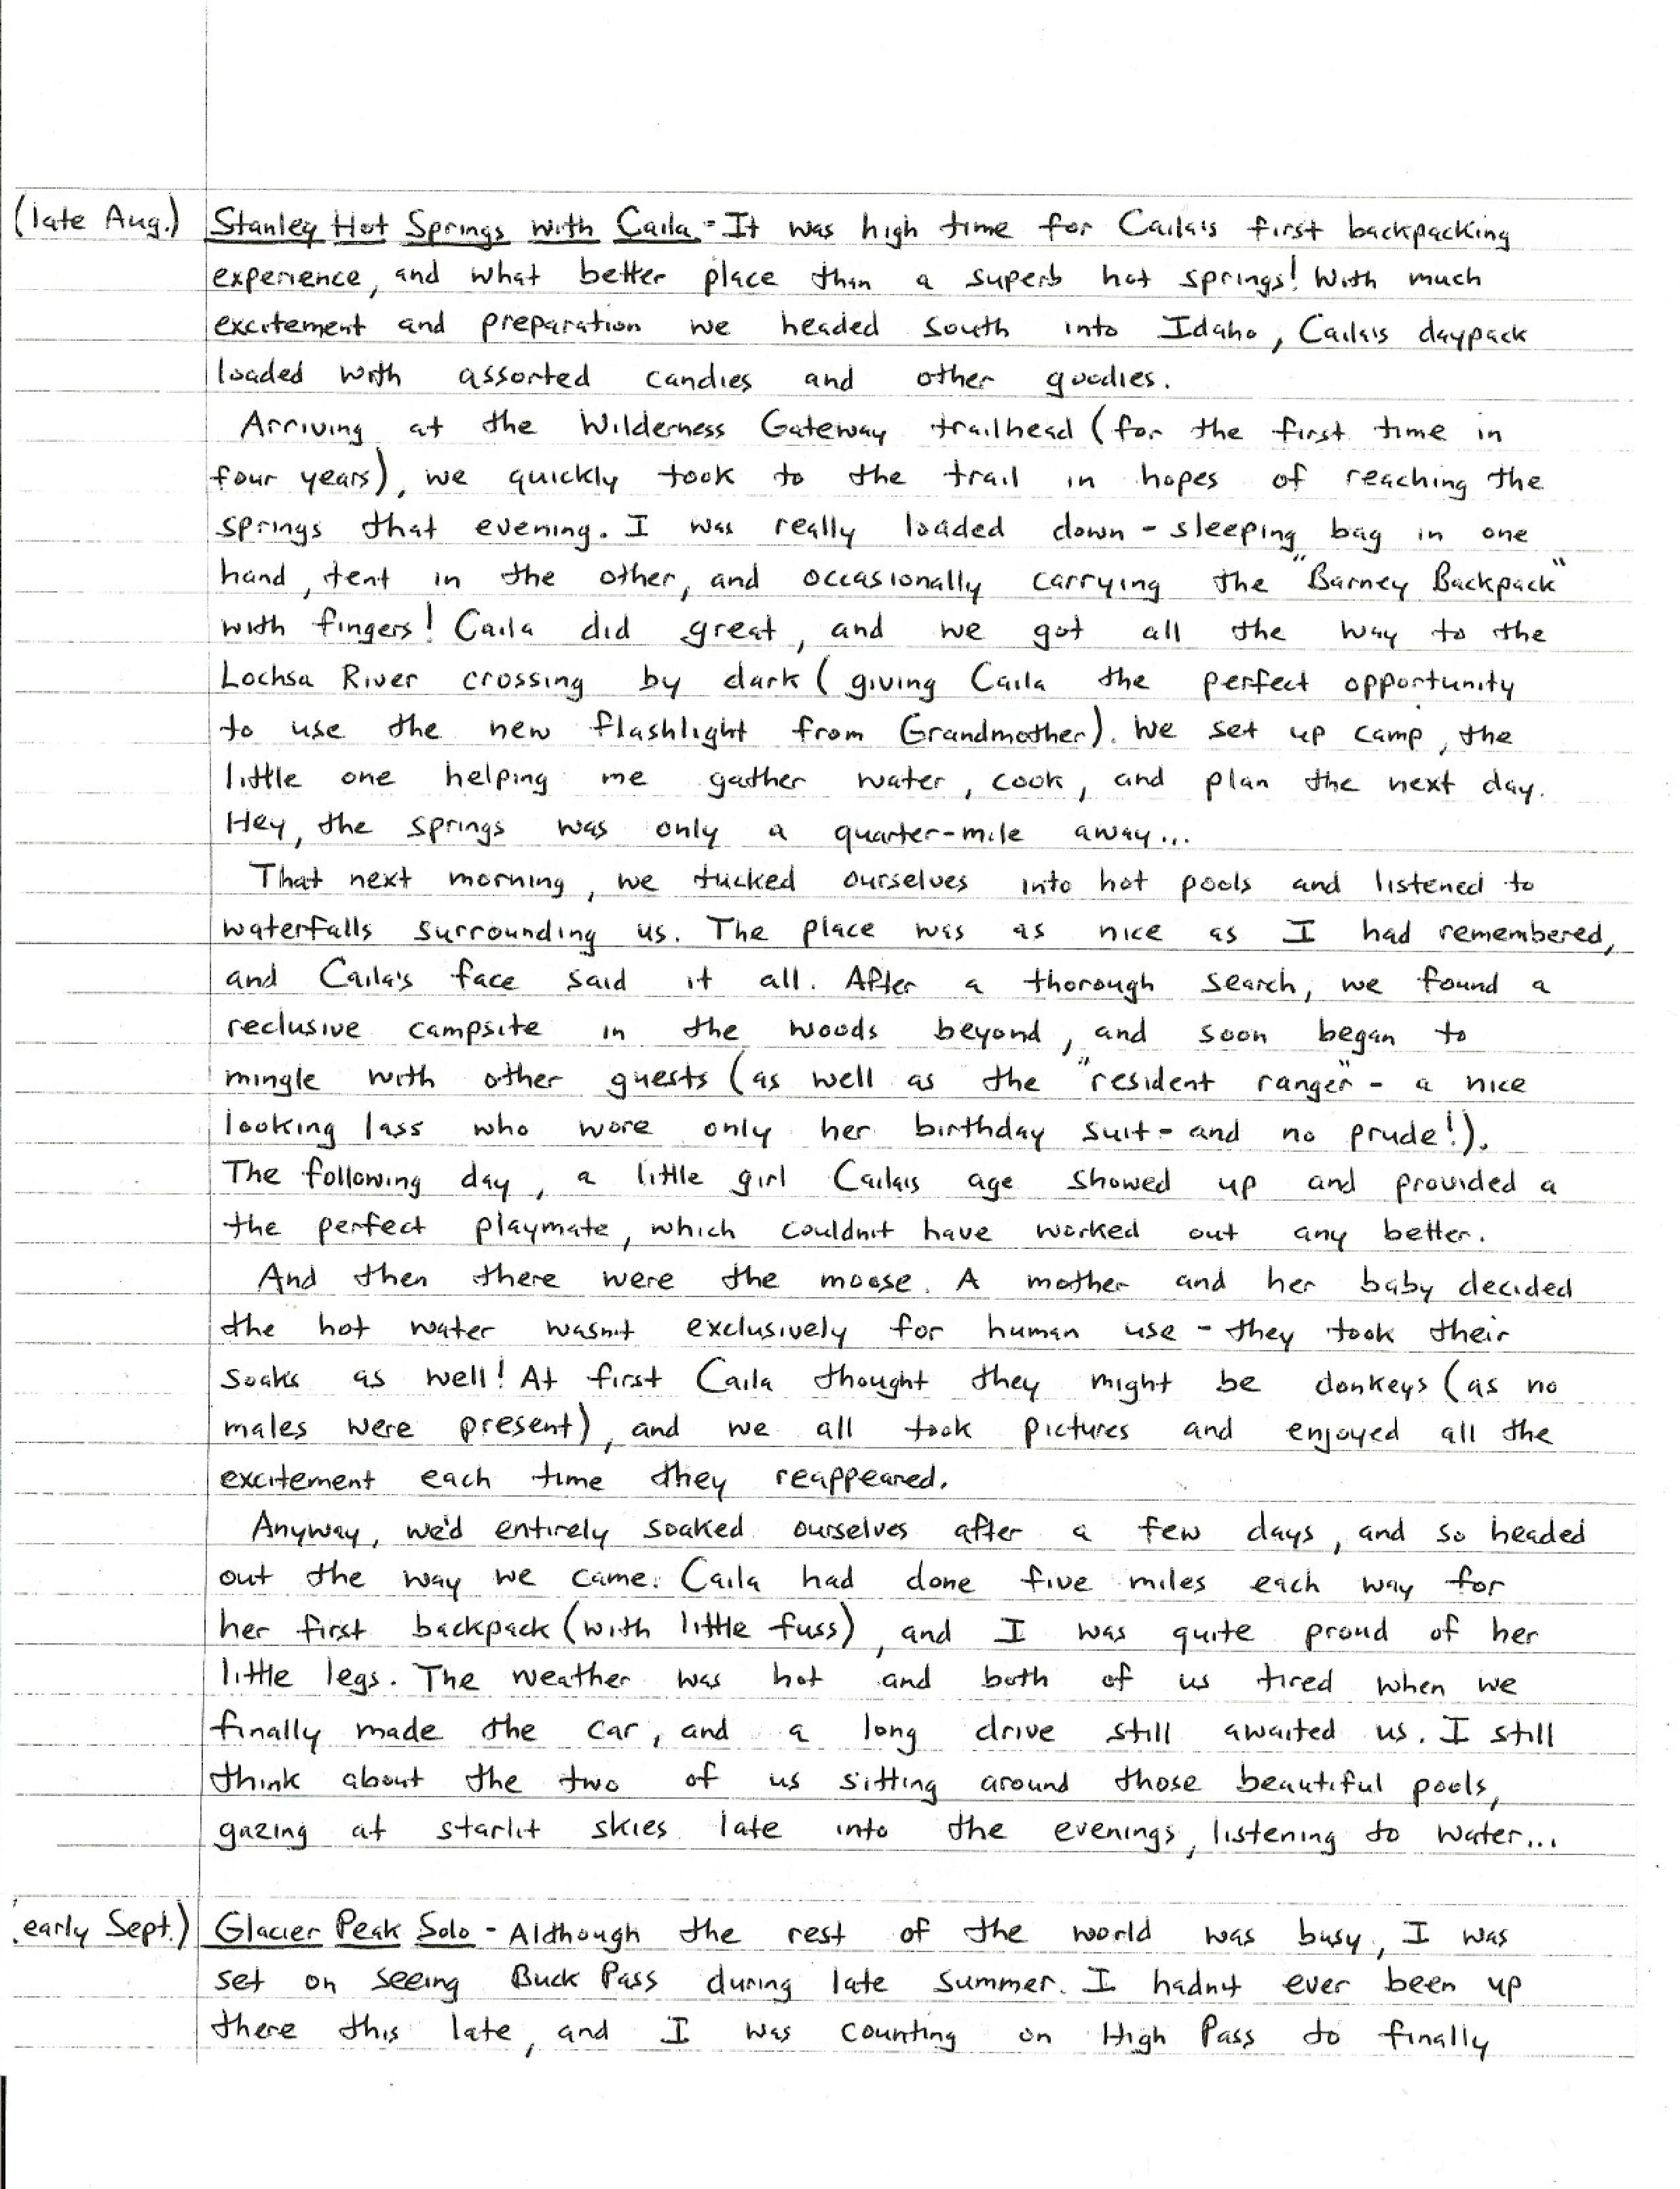 (late Aug.) Stanley Hot Springs with Caila - It was high time for Caila's first backpacking
experience, and what better place than a superb hot springs! With much
excitement and preparation we headed south into Idaho, Caila's daypack
loaded with assorted candies and other goodies.
Arriving at the Wilderness Gateway trailhead (for the first time in
four years), we quickly took to the trail in hopes of reaching the
springs that evening. I was really loaded down - sleeping bag in one
hand, tent in the other, and occasionally carrying the "Barney Backpack"
with fingers! Caila did great, and we got all the way to the
Lochsa River crossing by dark (giving Caila the perfect opportunity
to use the new flashlight from Grandmother). We set up camp, the
little one helping me gather water, cook, and plan the next day.
Hey, the springs was only a quarter-mile away...
That next morning, we tucked ourselves into hot pools and listened to
waterfalls surrounding us. The place was as nice as I had remembered,
and Caila's face said it all. After a thorough search, we found a
reclusive campsite in the woods beyond, and soon began to
mingle with other guests (as well as the "resident ranger" - a nice
looking lass who wore only her birthday suit - and no prude!).
The following day, a little girl Caila's age showed up and provided a
the perfect playmate, which couldn't have worked out any better.
And then there were the moose. A mother and her baby decided
the hot water wasn't exclusively for human use - they took their
soaks as well! At first Caila thought they might be donkeys (as no
males were present), and we all took pictures and enjoyed all the
excitement each time they reappeared.
Anyway, we'd entirely soaked ourselves after a few days, and so headed
out the way we came. Caila had done five miles each way for
her first backpack (with little fuss), and I was quite proud of her
little legs. The weather was hot and both of us tired when we
finally made the car, and a long drive still awaited us. I still
think about the two of us sitting around those beautiful pools,
gazing at starlit skies late into the evenings, listening to water...
(early Sept.) Glacier Peak Solo - Although the rest of the world was busy, I was
set on seeing Buck Pass during late summer. I hadn't ever been up
there this late, and I was counting on High Pass to finally